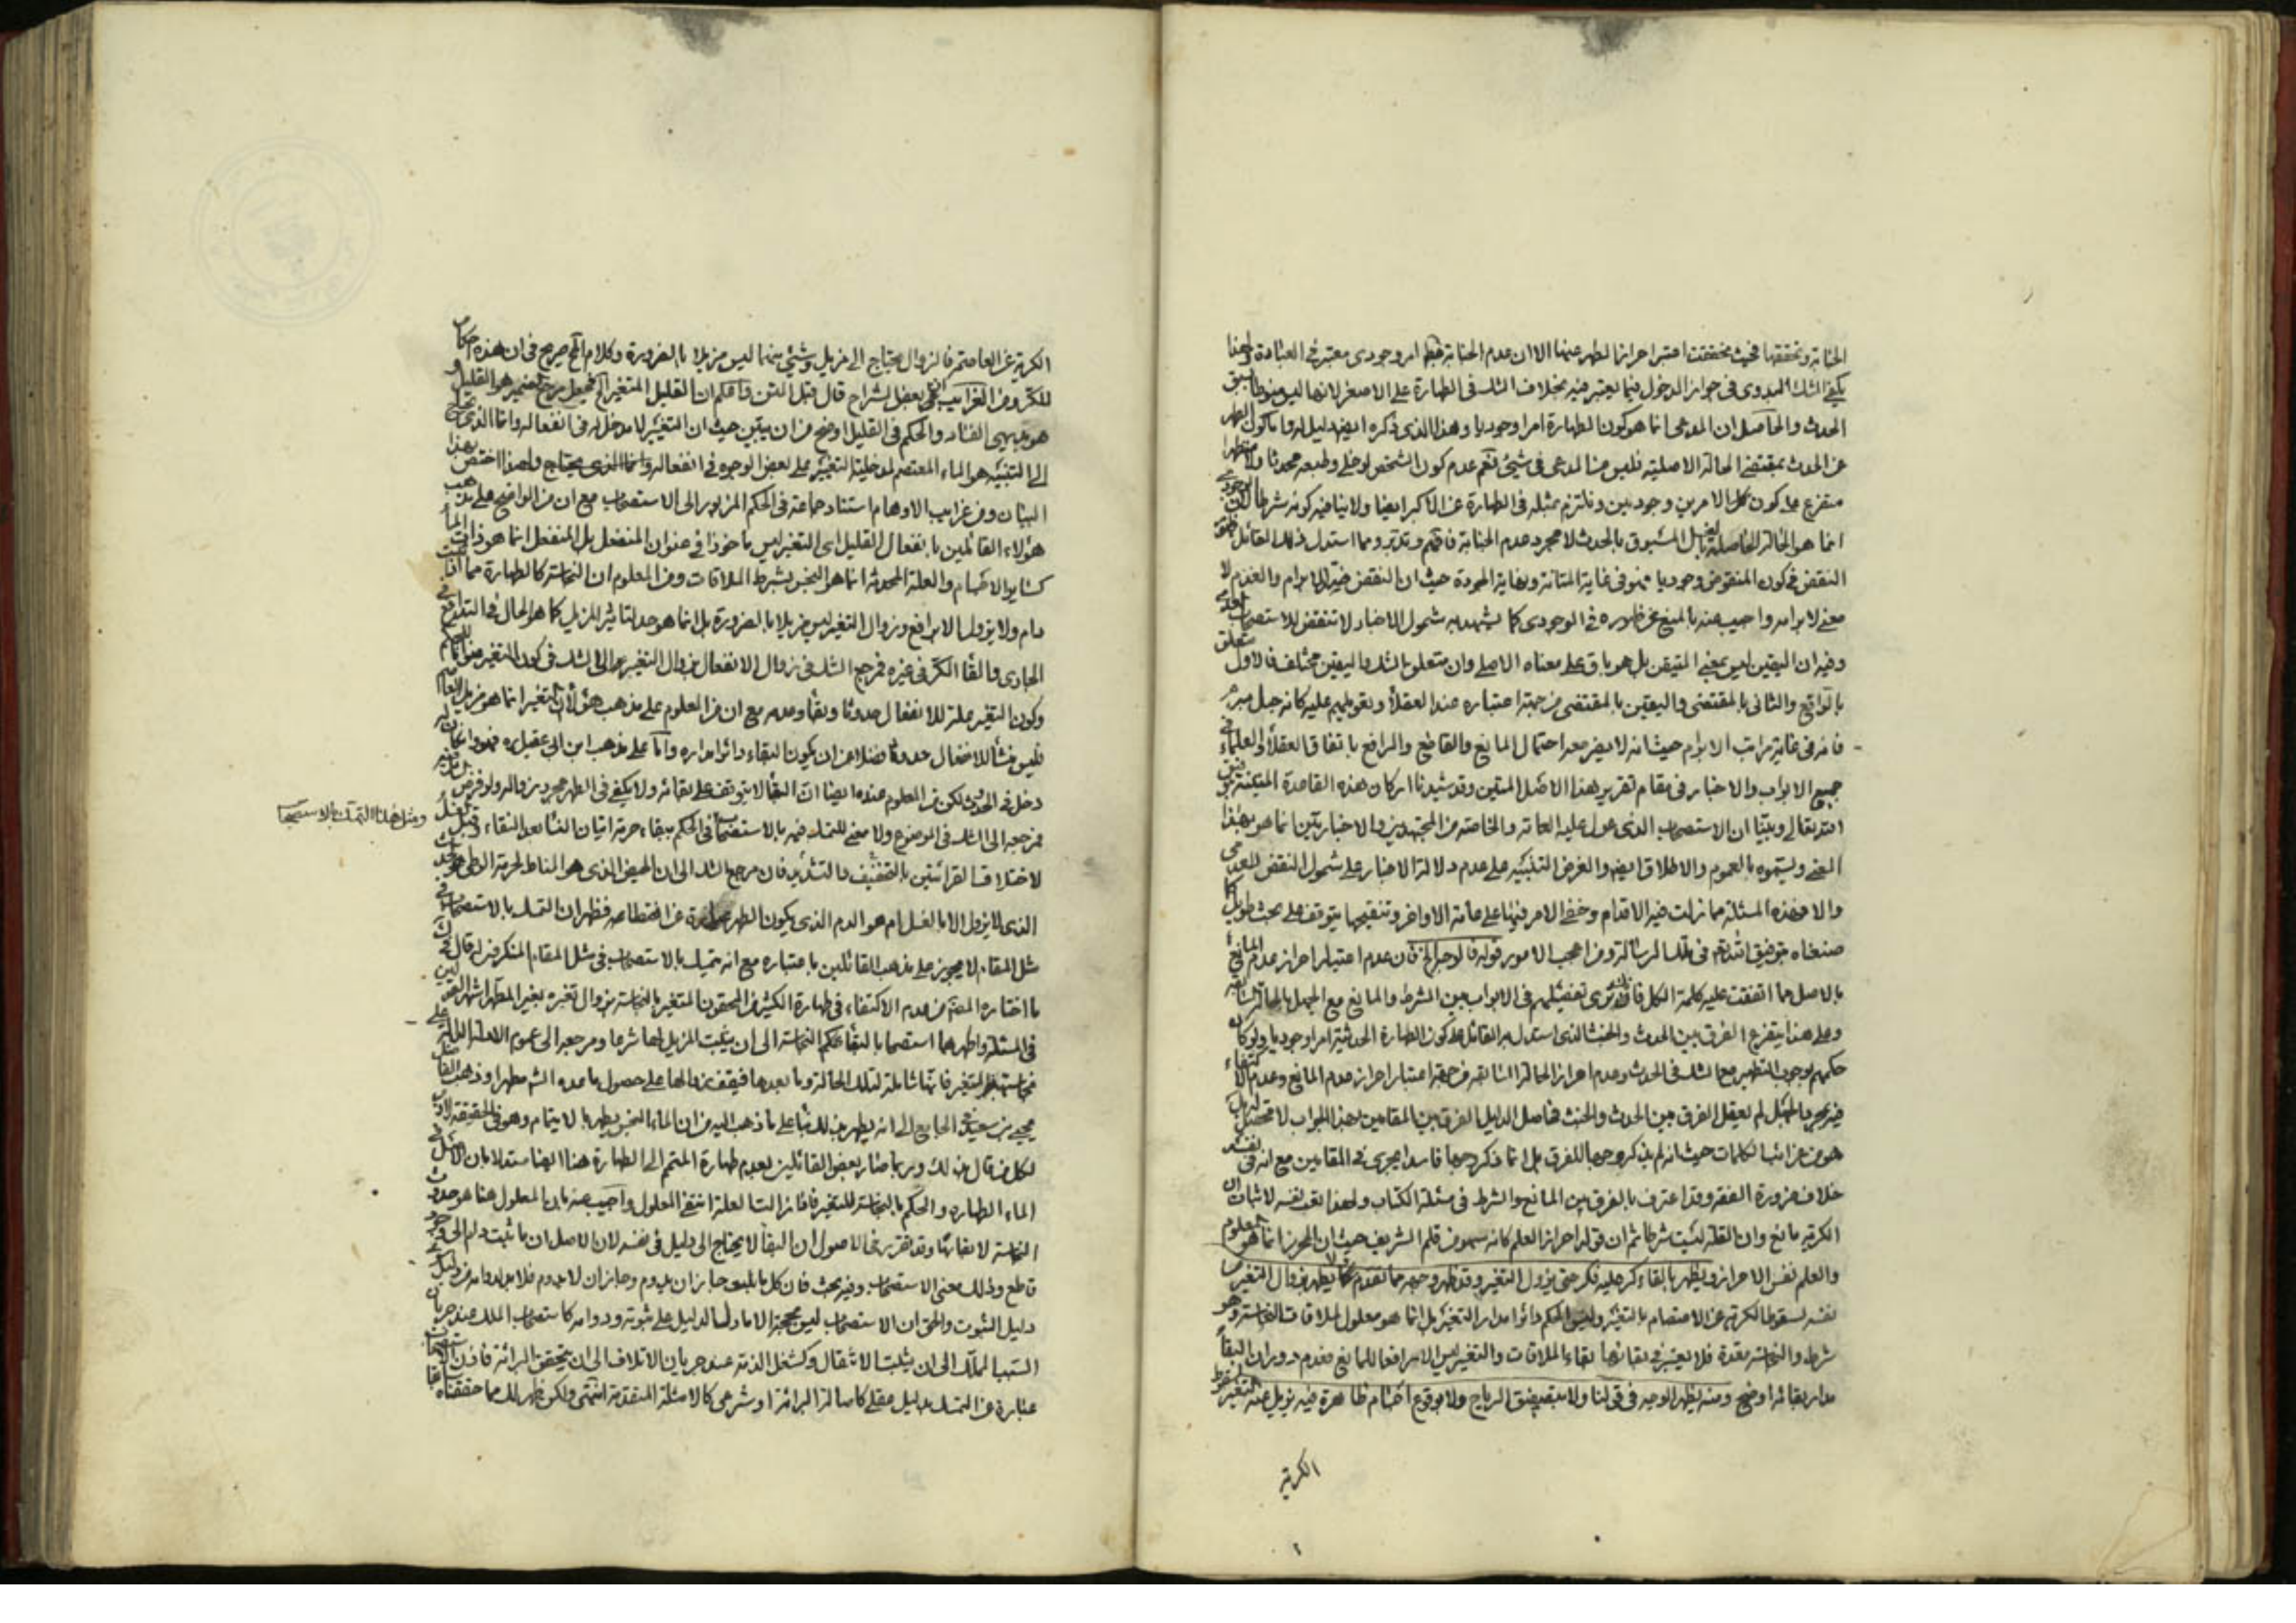 الجنابة وتحققها فحيث تحققت اعتبر احراز الطهر عنها الا ان عدم الجنابة امر وجودى معتبر فى العبادة ولهذا
يكفى الشك البدوى فى جواز الدخول فيما يعتبر فيه بخلاف الشك فى الطهارة على الاصغر لانها ليس منوطا بسبق
الحدث والحاصل ان المدعى انما هو كون الطهارة امرا وجوديا وهذا الذى ذكره ايضا دليل له واما كون الطهر
عن الحدث بمقتضى الحالة الاصلية فليس من المدعى فى شيئ نعم عدم كون الشخص لو خلى وطبعه محدثا ولا متطهرا
متفرع على كون كلا الامرين وجوديين ونلتزم بمثله فى الطهارة عن الاكبر ايضا ولا ينافيه كونه شرطا لان
انما هو الحالة الحاصلة بالغسل المسبوق بالحدث لا مجرد عدم الجنابة فافهم وتدبر ومما استدل ذلك القائل
النقض فى كون المنقوض وجوديا فهو فى غاية المتانة ونهاية الجودة حيث ان النقض ضد الابرام والعدم لا
معنى لابرامه واجيب عنه بالمنع عن ظهوره فى الوجودى كما يشهد به شمول الاخبار لا تنقض للاستصحاب
وفيه ان اليقين ليس بمعنى المتيقن بل هو باق على معناه الاصلى وان متعلق الشك واليقين مختلف فالاول متعلق
بالواقع والثانى بالمقتضى واليقين بالمقتضى من جهة اعتباره عند العقلاء وتعويلهم عليه كانه حبل مبرم
فانه فى غاية مراتب الابرام حيث انه لا يضر معه احتمال المانع والقاطع والرافع باتفاق العقلاء والعلماء فى
جميع الابواب والاخبار فى مقام تقرير هذا الاصل المتين وقد شيدنا اركان هذه القاعدة المتينة بتوفيق
الله تعالى وبينا ان الاستصحاب الذى عول عليه العامة والخاصة من المجتهدين والاخباريين انما هو بهذا
المعنى ويسموه بالعموم والاطلاق ايضا والغرض التنبيه على عدم دلالة الاخبار على شمول النقض للعدمى
والا فهذه المسئلة مما زلت فيه الاقدام وخفى الامر فيها على عامة الاواخر وتنقيحها يتوقف على بحث طويل
صنعناه بتوفيق الله تعالى فى تلك الرسالة ومن اعجب الامور قوله فالوجه الخ فان عدم اعتبار احراز عدم المانع
بالاصل مما اتفقت عليه كلمة الكل فانك ترى تفصيلهم فى الابواب بين الشرط والمانع مع الجهل بالحالة السابقة
وعلى هذا يتفرع الفرق بين الحدث والخبث الذى استدل به القائل على كون الطهارة الحدثية امرا وجوديا ولو كان
حكمهم بوجوب التطهير مع الشك فى الحدث وعدم احراز الحالة السابقة من جهة اعتبار احراز عدم المانع وعدم الاكتفاء
فيه بمجرد الجهل لم يعقل الفرق بين الحدث والخبث فحاصل الدليل الفرق بين المقامين بهذا الجواب لا محصل له بل
هو من غرائب الكلمات حيث انه لم يذكر وجها للفرق بل انما ذكر وجها فاسدا يجرى فى المقامين مع انه فى نفسه
خلاف ضرورة الفقه وقد اعترف بالفرق بين المانع والشرط فى مسئلة الكتاب ولهذا تعب نفسه لاثبات ان
الكرية مانع وان القلة ليست شرطا ثم ان قوله احراز العلم كانه سهو من قلم الشريف حيث ان المحرز انما هو المعلوم
والعلم نفس الاحراز ويطهر بالقاء كر عليه فكر حتى يزول التغير وقد ظهر وجهه مما تقدم ولا يطهر بزوال التغير من
نفسه لسقوط الكرية عن الاعتصام بالتغير وليس الحكم دائرا مدار التغير بل انما هو معلول لملاقات النجاسة وهو
شرط والنجاسة مقدة فلا يعتبر فى بقائها بقاء الملاقات والتغير ليس الا رافعا للمانع فعدم دوران البقاء
مدار بقائه اوضح ومنه يظهر الوجه فى قولنا ولا بتصفيق الرياح ولا بوقوع اجسام طاهرة فيه يزيل عنه التغير لسقوط
الكرية
الكرية عن العاصمية فالزوال يحتاج الى مزيل وشيئ منها ليس مزيلا بالضرورة وكلام الخ صريح فى ان هذه احكام
للكر ومن الغرائب ان بعض الشراح قال قبل المتن واعلم ان القليل المتغير الخ فجعل مرجع الضمير هو القليل و
هو بديهى الفساد والحكم فى القليل اوضح من ان يبين حيث ان التغير لا مدخل له فى انفعاله وانما الذى يحتاج
الى التنبيه هو الماء المعتصم لمدخلية التغير على بعض الوجوه فى انفعاله وانما الذى يحتاج ولهذا اختص بهذا
البيان ومن غرايب الاوهام استناد جماعة فى الحكم المزبور الى الاستصحاب مع ان من الواضح على مذهب
هؤلاء القائلين بانفعال القليل ان التغير ليس ماخوذا فى عنوان المنفعل بل المنفعل انما هو ذات الماء
كساير الاجسام والعلة المحدثة انما هو النجس بشرط الملاقات ومن المعلوم ان النجاسة كالطهارة مما اذا ثبت
دام ولا يزول الا برافع وزوال التغير ليس مزيلا بالضرورة بل انما هو حد لتاثير المزيل كما هو الحال فى التدافع فى
الجارى والقاء الكر فى غيره فمرجع الشك فى زوال الانفعال بزوال التغير الى الشك فى كون التغير عنوانا للحكم
وكون التغير علة للانفعال حدوثا وبقاء وعدمه مع ان من المعلوم على مذهب هؤلاء ان التغير انما هو مزيل للعاصم
فليس منشأ للانفعال حدوثا فضلا عن ان يكون البقاء دائرا مداره واما على مذهب ابن ابى عقيل ره فهو وان كان له
دخل فى الحدوث لكن من المعلوم عنده ايضا ان البقاء لا يتوقف على بقائه ولا يكفى فى الطهر مجرد زواله ولو فرض الشك فيه
فمرجعه الى الشك فى الموضوع ولا معنى للتمسك فيه بالاستصحاب فى الحكم ببقاء حرمة اتيان النساء بعد النقاء وقبل الغسل
ومثل هذا التمسك بالاستصحاب
لاختلاف القرائتين بالتخفيف والتشديد فان مرجع الشك الى ان الحيض الذى هو المناط لحرمة الوطى هو الحدث
الذى لا يزول الا بالغسل ام هو الدم الذى يكون الطهر عبارة عن انقطاعه فظهر ان التمسك بالاستصحاب فى
مثل المقام لا يجوز على مذهب القائلين باعتباره مع انه يتمسك بالاستصحاب فى مثل المقام المنكرين له قال فى ك
ما اختاره المصنف من عدم الاكتفاء فى طهارة الكثير المحقون المتغير بالنجاسة بزوال تغيره بغير المطهر اشهر القولين
فى المسئلة واظهرهما استصحابا لبقاء حكم النجاسة الى ان يثبت المزيل لها شرعا ومرجعه الى عموم الادلة الدالة على
نجاسته بالتغير فانها شاملة لتلك الحالة وما بعدها فيقف زوالها على حصول ما عده الشارع مطهرا وذهب الفاضل
يحيى بن سعيد فى الجامع الى انه يطهر بذلك بناء على ما ذهب اليه من ان الماء النجس يطهر بالاتمام وهو فى الحقيقة لازم
لكل من قال بذلك وربما صار بعض القائلين بعدم طهارة المتمم الى الطهارة هنا ايضا مستدلا بان الاصل فى
الماء الطهارة والحكم بالنجاسة للتغير فاذا زالت العلة انتفى المعلول واجيب عنه بان المعلول هنا هو حدوث
النجاسة لا بقائها وقد تقرر فى الاصول ان البقاء لا يحتاج الى دليل فى نفسه لان الاصل ان ما ثبت دام الى وجود
قاطع وذلك معنى الاستصحاب وفيه بحث فان كل ما ثبت جاز ان يدوم وجاز ان لا يدوم فلا بد لدوامه من دليل سوى
دليل الثبوت والحق ان الاستصحاب ليس بحجة الا ما دل الدليل على ثبوته ودوامه كاستصحاب الملك عند جريان
السبب المملك الى ان يثبت الانتقال وكشغل الذمة عند جريان الاتلاف الى ان يتحقق البرائة فاذن الاستصحاب
عبارة عن التمسك بدليل عقلى كاصالة البرائة او شرعى كالامثلة المتقدمة انتهى ولكن ظهر لك مما حققناه